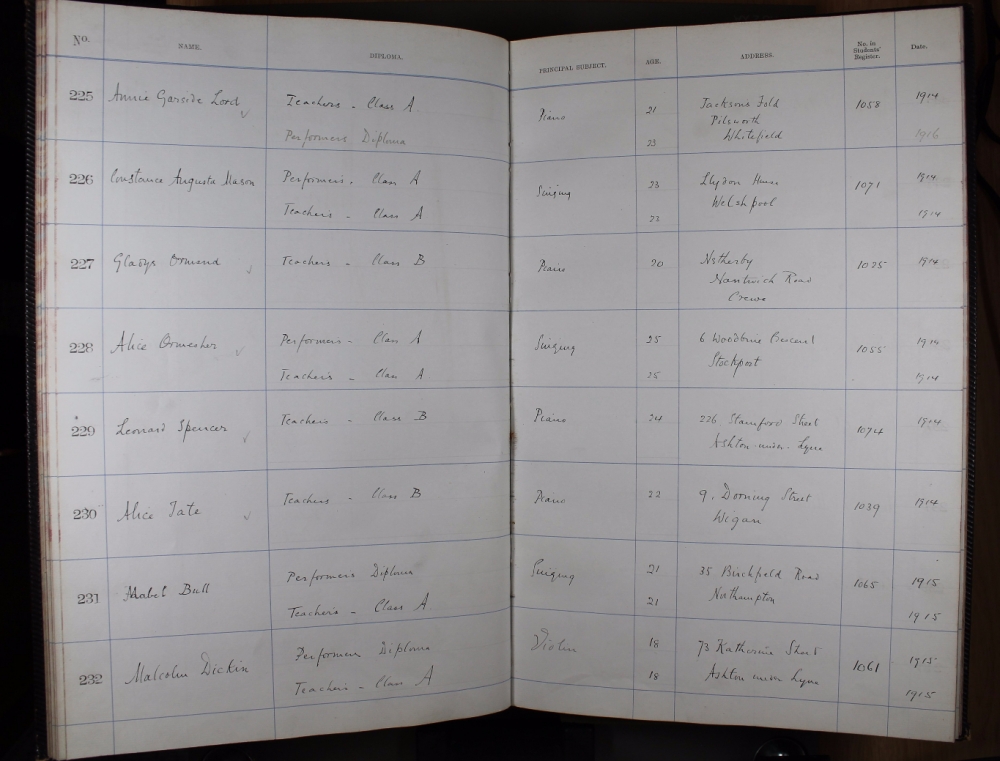 No. NAME. DIPLOMA. PRINCIPAL SUBJECT. AGE. ADDRESS. No. in Students' Register. Date.
225 Annie Garside Lord Teachers - Class A Piano 21 Jacksons Fold 1058 1914
Pilsworth
Performers Diploma 23 Whitefield 1916
226 Constance Augusta Mason Performers - Class A Singing 23 House 1071 1914
Welshpool
Teachers - Class A 23 1914
227 Gladys Ormand Teachers - Class B Piano 20 Netherby 1025 1914
Nantwich Road
Crewe
228 Alice Ormesher Performers - Class A Singing 25 6 Woodbine Crescent 1055 1914
Stockport
Teachers - Class A 25 1914
229 Leonard Spencer Teachers - Class B Piano 24 226 Stamford Street 1074 1914
Ashton-under-Lyne
230 Alice Tate Teachers - Class B Piano 22 9, Dorning Street 1039 1914
Wigan
231 Mabel Bull Performers Diploma Singing 21 35 Birchfield Road 1065 1915
Northampton
Teachers - Class A 21 1915
232 Malcolm Dickin Performers Diploma Violin 18 73 Katherine Street 1061 1915
Teachers - Class A 18 Ashton under Lyne 1915